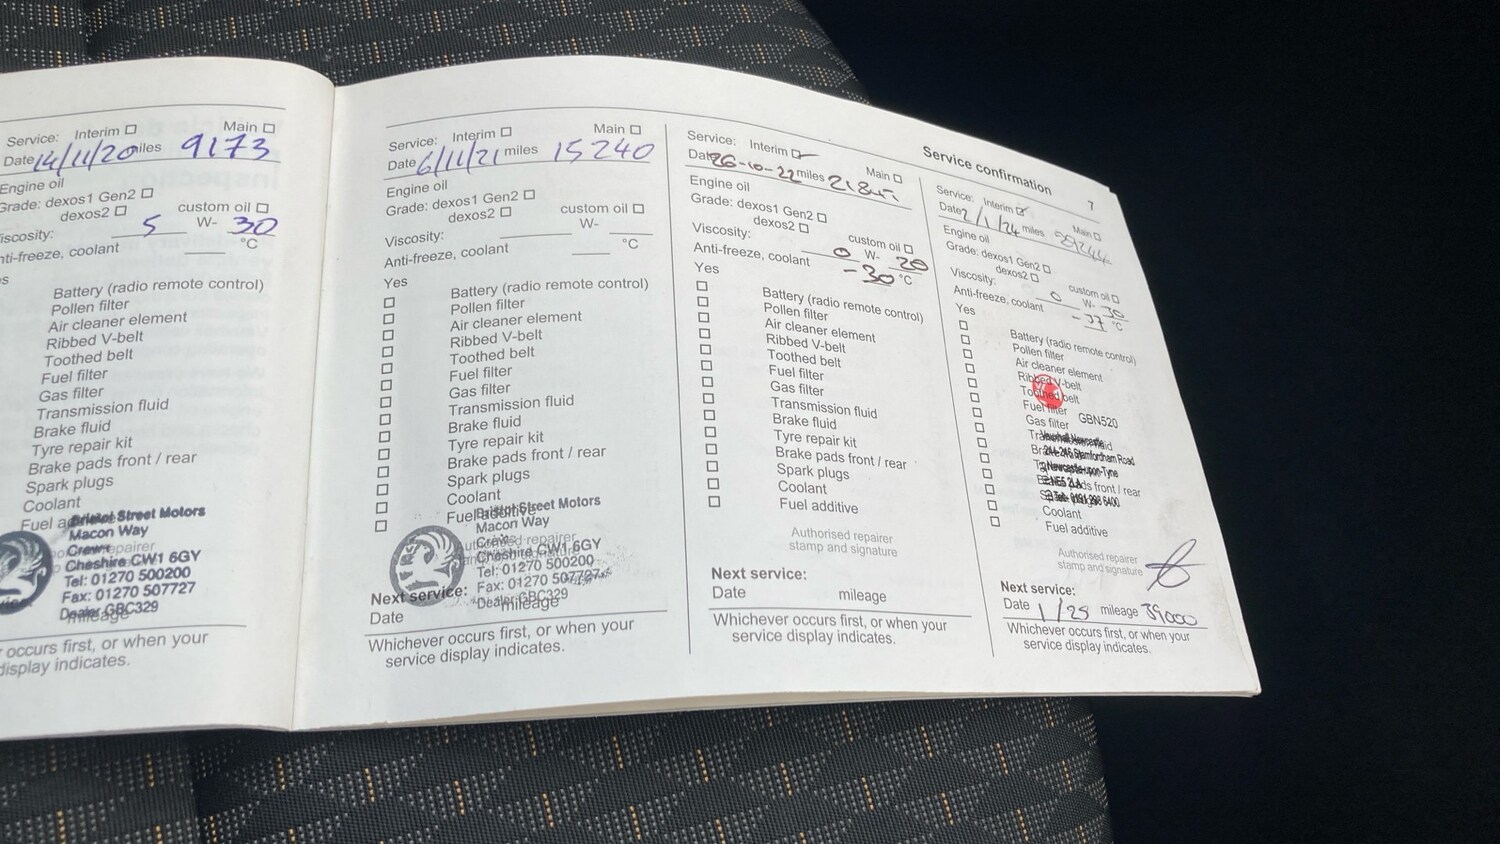 Service: Interim Main
Date 14/11/20 miles 9173
Engine oil
Grade: dexos1 Gen2
dexos2 custom oil
Viscosity: 5 W- 30
Anti-freeze, coolant °C
Battery (radio remote control)
Pollen filter
Air cleaner element
Ribbed V-belt
Toothed belt
Fuel filter
Gas filter
Transmission fluid
Brake fluid
Tyre repair kit
Brake pads front / rear
Spark plugs
Coolant
Fuel additive
Bristol Street Motors
Macon Way
Crewe
Cheshire CW1 6GY
Tel: 01270 500200
Fax: 01270 507727
Dealer GBC329
mileage
occurs first, or when your
display indicates.
Service: Interim Main
Date 6/11/21 miles 15240
Engine oil
Grade: dexos1 Gen2
dexos2 custom oil
Viscosity: W-
Anti-freeze, coolant °C
Yes
Battery (radio remote control)
Pollen filter
Air cleaner element
Ribbed V-belt
Toothed belt
Fuel filter
Gas filter
Transmission fluid
Brake fluid
Tyre repair kit
Brake pads front / rear
Spark plugs
Coolant
Fuel additive
Bristol Street Motors
Macon Way
Crewe
Cheshire CW1 6GY
Tel: 01270 500200
Fax: 01270 507727
Dealer GBC329
Next service:
Date mileage
Whichever occurs first, or when your
service display indicates.
Service: Interim Main
Date 26-10-22 miles
Engine oil
Grade: dexos1 Gen2
dexos2 custom oil
Viscosity: 0 W- 20
Anti-freeze, coolant -30 °C
Yes
Battery (radio remote control)
Pollen filter
Air cleaner element
Ribbed V-belt
Toothed belt
Fuel filter
Gas filter
Transmission fluid
Brake fluid
Tyre repair kit
Brake pads front / rear
Spark plugs
Coolant
Fuel additive
Authorised repairer
stamp and signature
Next service:
Date mileage
Whichever occurs first, or when your
service display indicates.
Service confirmation
7
Service: Interim Main
Date 2/1/24 miles
Engine oil
Grade: dexos1 Gen2
dexos2 custom oil
Viscosity: 0 W- 30
Anti-freeze, coolant -37 °C
Yes
Battery (radio remote control)
Pollen filter
Air cleaner element
Ribbed V-belt
Toothed belt
Fuel filter GBN520
Gas filter
Vauxhall Newcastle
Stamfordham Road
Newcastle-upon-Tyne
pads front / rear
Coolant
Fuel additive
Authorised repairer
stamp and signature
Next service:
Date 1/25 mileage 39000
Whichever occurs first, or when your
service display indicates.